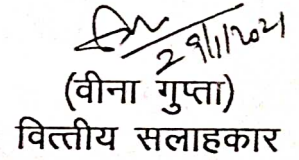 29/1/2021
(वीना गुप्ता)
वित्तीय सलाहकार